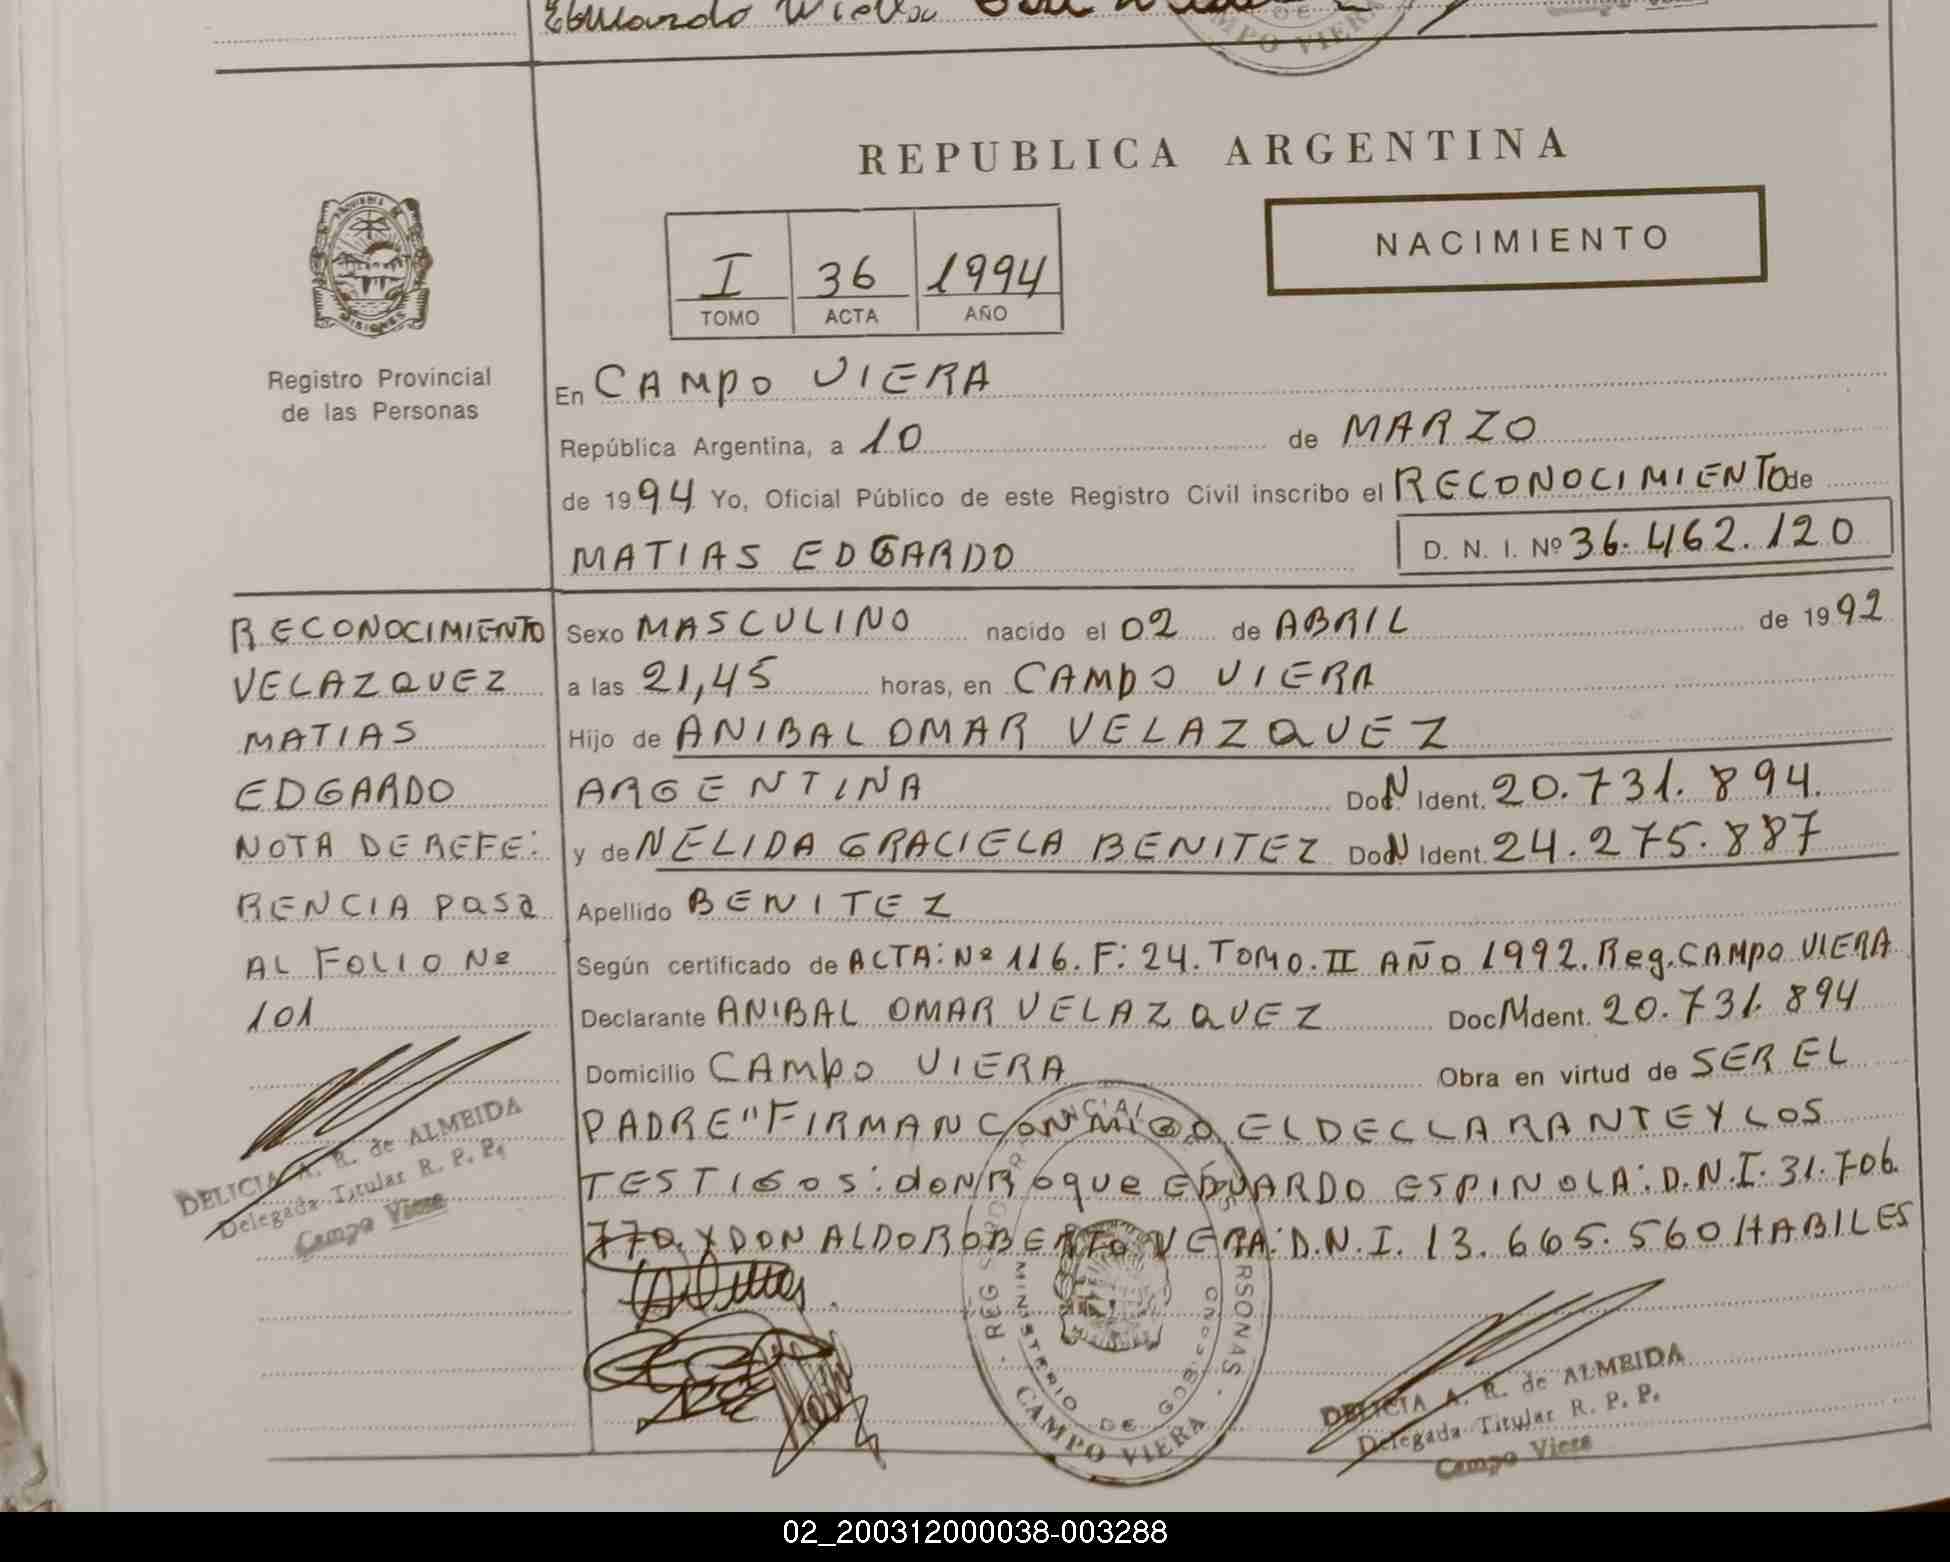 Eduardo Viella
DE
CAMPO VIERA
REPUBLICA ARGENTINA
NACIMIENTO
I 36 1994
TOMO ACTA AÑO
PROVINCIA DE
MISIONES
Registro Provincial
de las Personas
En CAMPO VIERA
República Argentina, a 10 de MARZO
de 1994 Yo, Oficial Público de este Registro Civil inscribo el RECONOCIMIENTO de
MATIAS EDGARDO D. N. I. Nº 36.462.120
RECONOCIMIENTO
VELAZQUEZ
MATIAS
EDGARDO
NOTA DE REFE:
RENCIA PASA
AL FOLIO Nº
101
DELICIA A. R. de ALMEIDA
Delegada Titular R. P. P.
Campo Viera
Sexo MASCULINO nacido el 02 de ABRIL de 1992
a las 21,45 horas, en CAMPO VIERA
Hijo de ANIBAL OMAR VELAZQUEZ
ARGENTINA DoN Ident. 20.731.894.
y de NELIDA GRACIELA BENITEZ DoN Ident. 24.275.887
Apellido BENITEZ
Según certificado de ACTA: Nº 116. F: 24. TOMO. II AÑO 1992. Reg. CAMPO VIERA
Declarante ANIBAL OMAR VELAZQUEZ Doc N Ident. 20.731.894
Domicilio CAMPO VIERA Obra en virtud de SER EL
PADRE" FIRMAN CONMIGO EL DECLARANTE Y LOS
TESTIGOS: don Roque EDUARDO ESPINOLA: D.N.I. 31.706.
770. Y DON ALDO ROBERTO VERA: D.N.I. 13.665.560 HABILES
REG PROVINCIAL PERSONAS
MINISTERIO DE GOBIERNO
CAMPO VIERA
DELICIA A. R. de ALMEIDA
Delegada Titular R. P. P.
Campo Viera
02_200312000038-003288